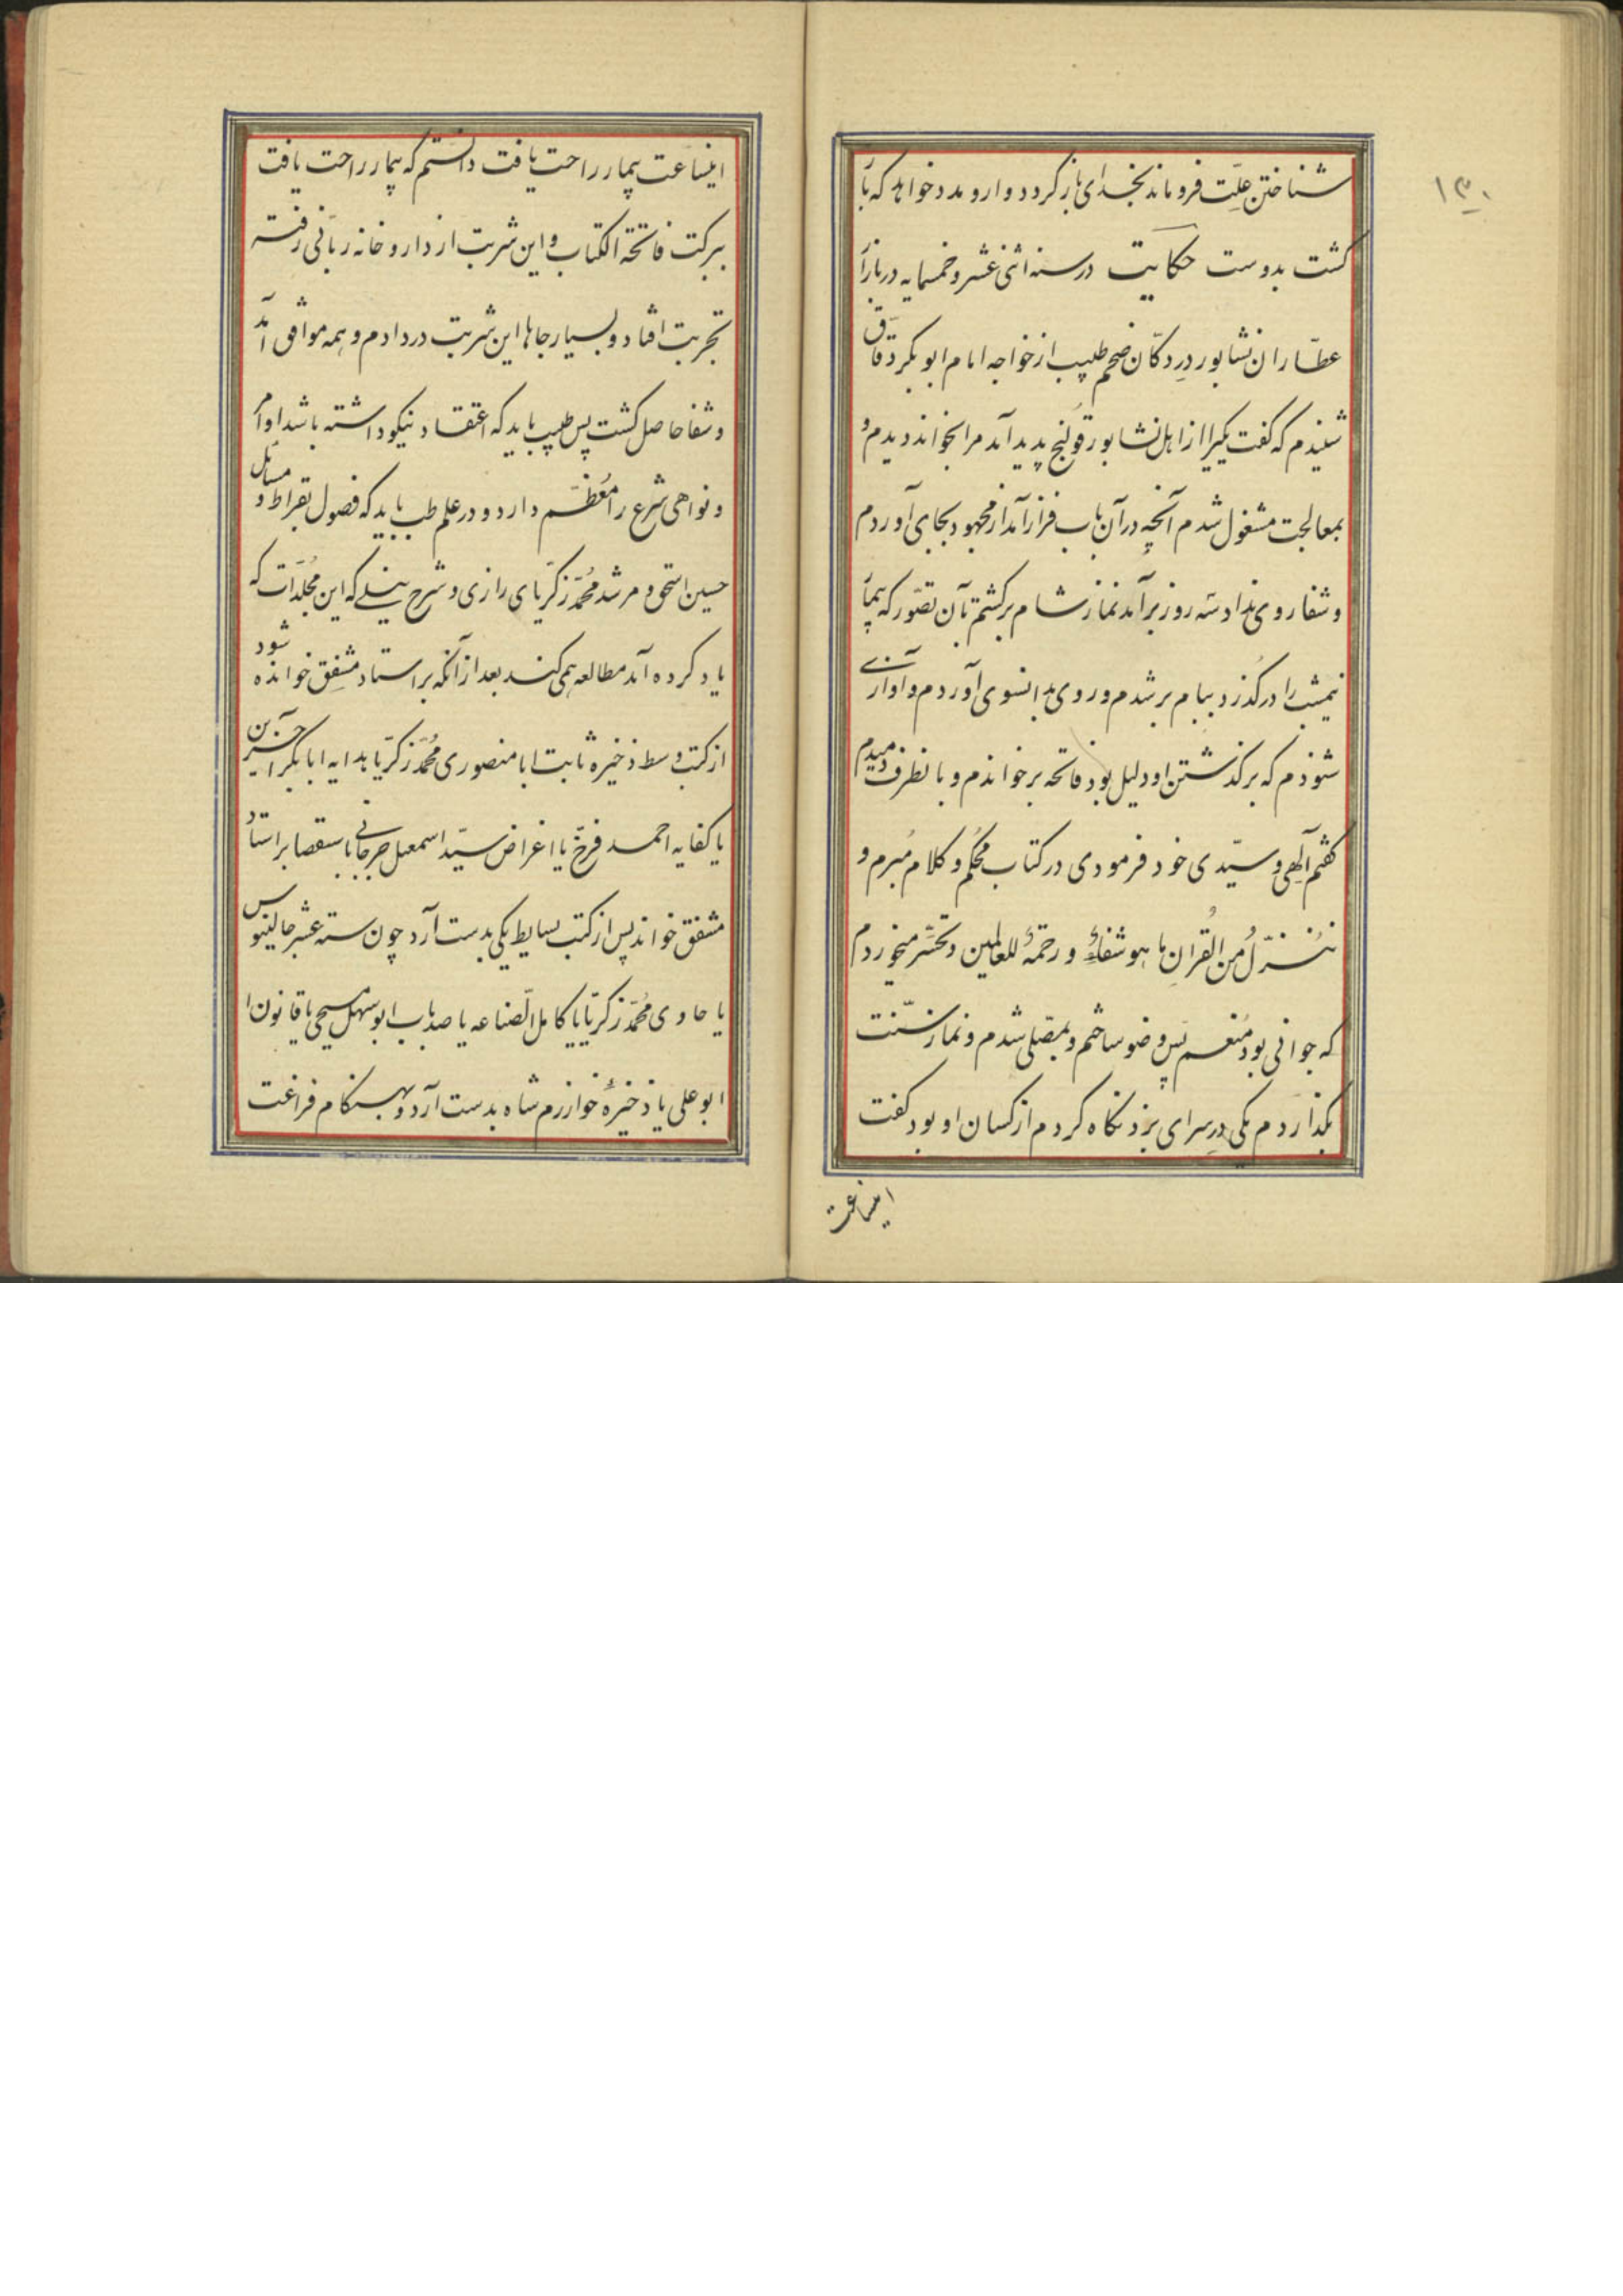 ۱۳۰
شناختن علّت فروماند بخدای بازگردد وازو مدد خواهد که با
گشت بدوست حکایت در سنه اثنی عشر و خمسمایه در بازار
عطّاران نشابور در دکّان محمد طبیب از خواجه امام ابوبکر دقاق
شنیدم که گفت یکیرا از اهل نشابور قولنج پدید آمد مرا بخواند دیدم و
بمعالجت مشغول شدم آنچه در آن باب فراز آمد از مجهود بجای آوردم
و شفا روی نداد سه روز برآمد نماز شام برگشتم بآن تصوّر که بیمار
نیمشب را درگذرد ببام برشدم و روی بدانسوی آوردم و آوازی
شنودم که برگذشتن او دلیل بود فاتحه برخواندم و بانطرف دمیدم
گفتم آلهی و سیّدی خود فرمودی در کتاب محکم و کلام مُبرم و
نُنَزّلُ مِن القرانِ ما هو شفاءٌ و رحمةٌ للعالمین و تحسّر میخوردم
که جوانی بود منعم پس وضو ساختم و بمصلّی شدم و نماز سنّت
بگذاردم یکی در سرای بزد نگاه کردم از کسان او بود گفت
اینساعت
اینساعت بیمار راحت یافت دانستم که بیمار راحت یافت
ببرکت فاتحة الکتاب و این شربت از داروخانه ربّانی رفته
تجربت افتاد و بسیار جاها این شربت در دادم و همه موافق آمد
و شفا حاصل گشت پس طبیب باید که اعتقاد نیکو داشته باشد اوامر
و نواهی شرع را مُعظّم دارد و در علم طب باید که فصول بقراط و مسائل
حسین اسحق و مرشد محمّد زکریّای رازی و شرح نیلے که این مجلّدات که
یاد کرده آمد مطالعه همی کند بعد از آنکه بر استاد مشفِق خوانده شود
از کتب وسط ذخیره ثابت ابا منصوری محمّد زکریّا بدایه ابابکر اخسرین
یا کفایه احمد فرخ یا اغراض سیّد اسمعیل جرجانی باستقصا بر استاد
مشفق خواند پس از کتب بسایط یکی بدست آرد چون سته عشر جالینوس
یا حاوی محمّد زکریّا یا کامل الصّناعه یا صد باب ابو سهل مسیحی یا قانون ا
ابوعلی یا ذخیرهٔ خوارزم شاه بدست آرد و بهنگام فراغت